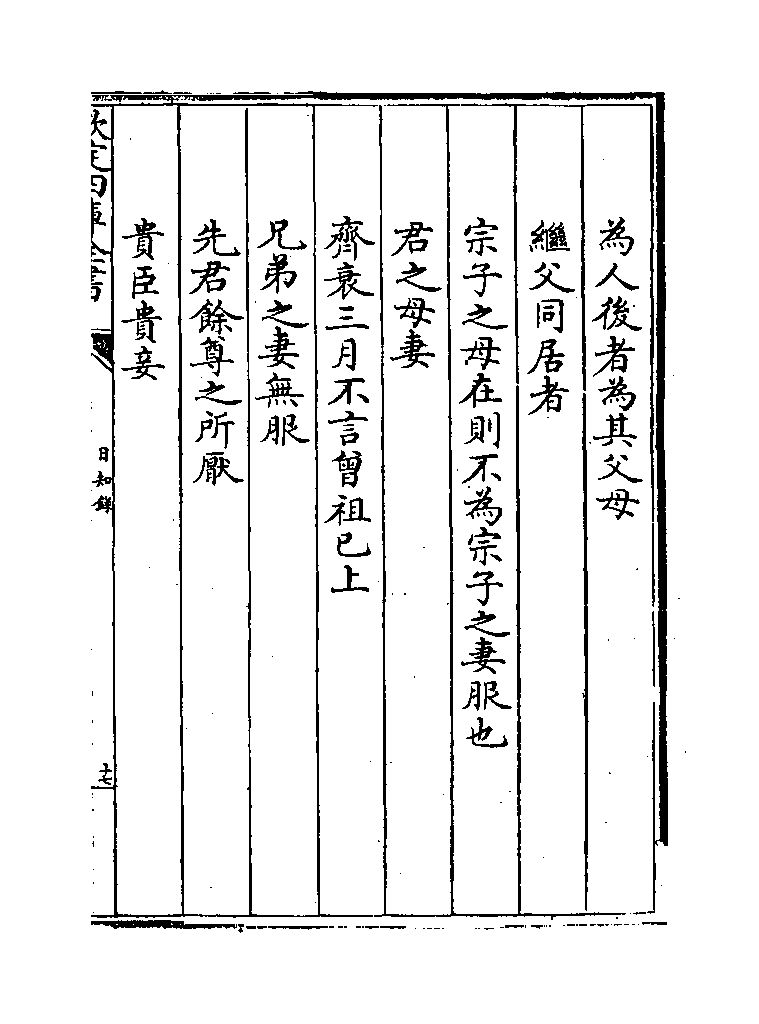 為人後者為其父母
繼父同居者
宗子之母在則不為宗子之妻服也
君之母妻
齊衰三月不言曾祖已上
兄弟之妻無服
先君餘尊之所厭
貴臣貴妾
欽定四庫全書
日知錄
十七